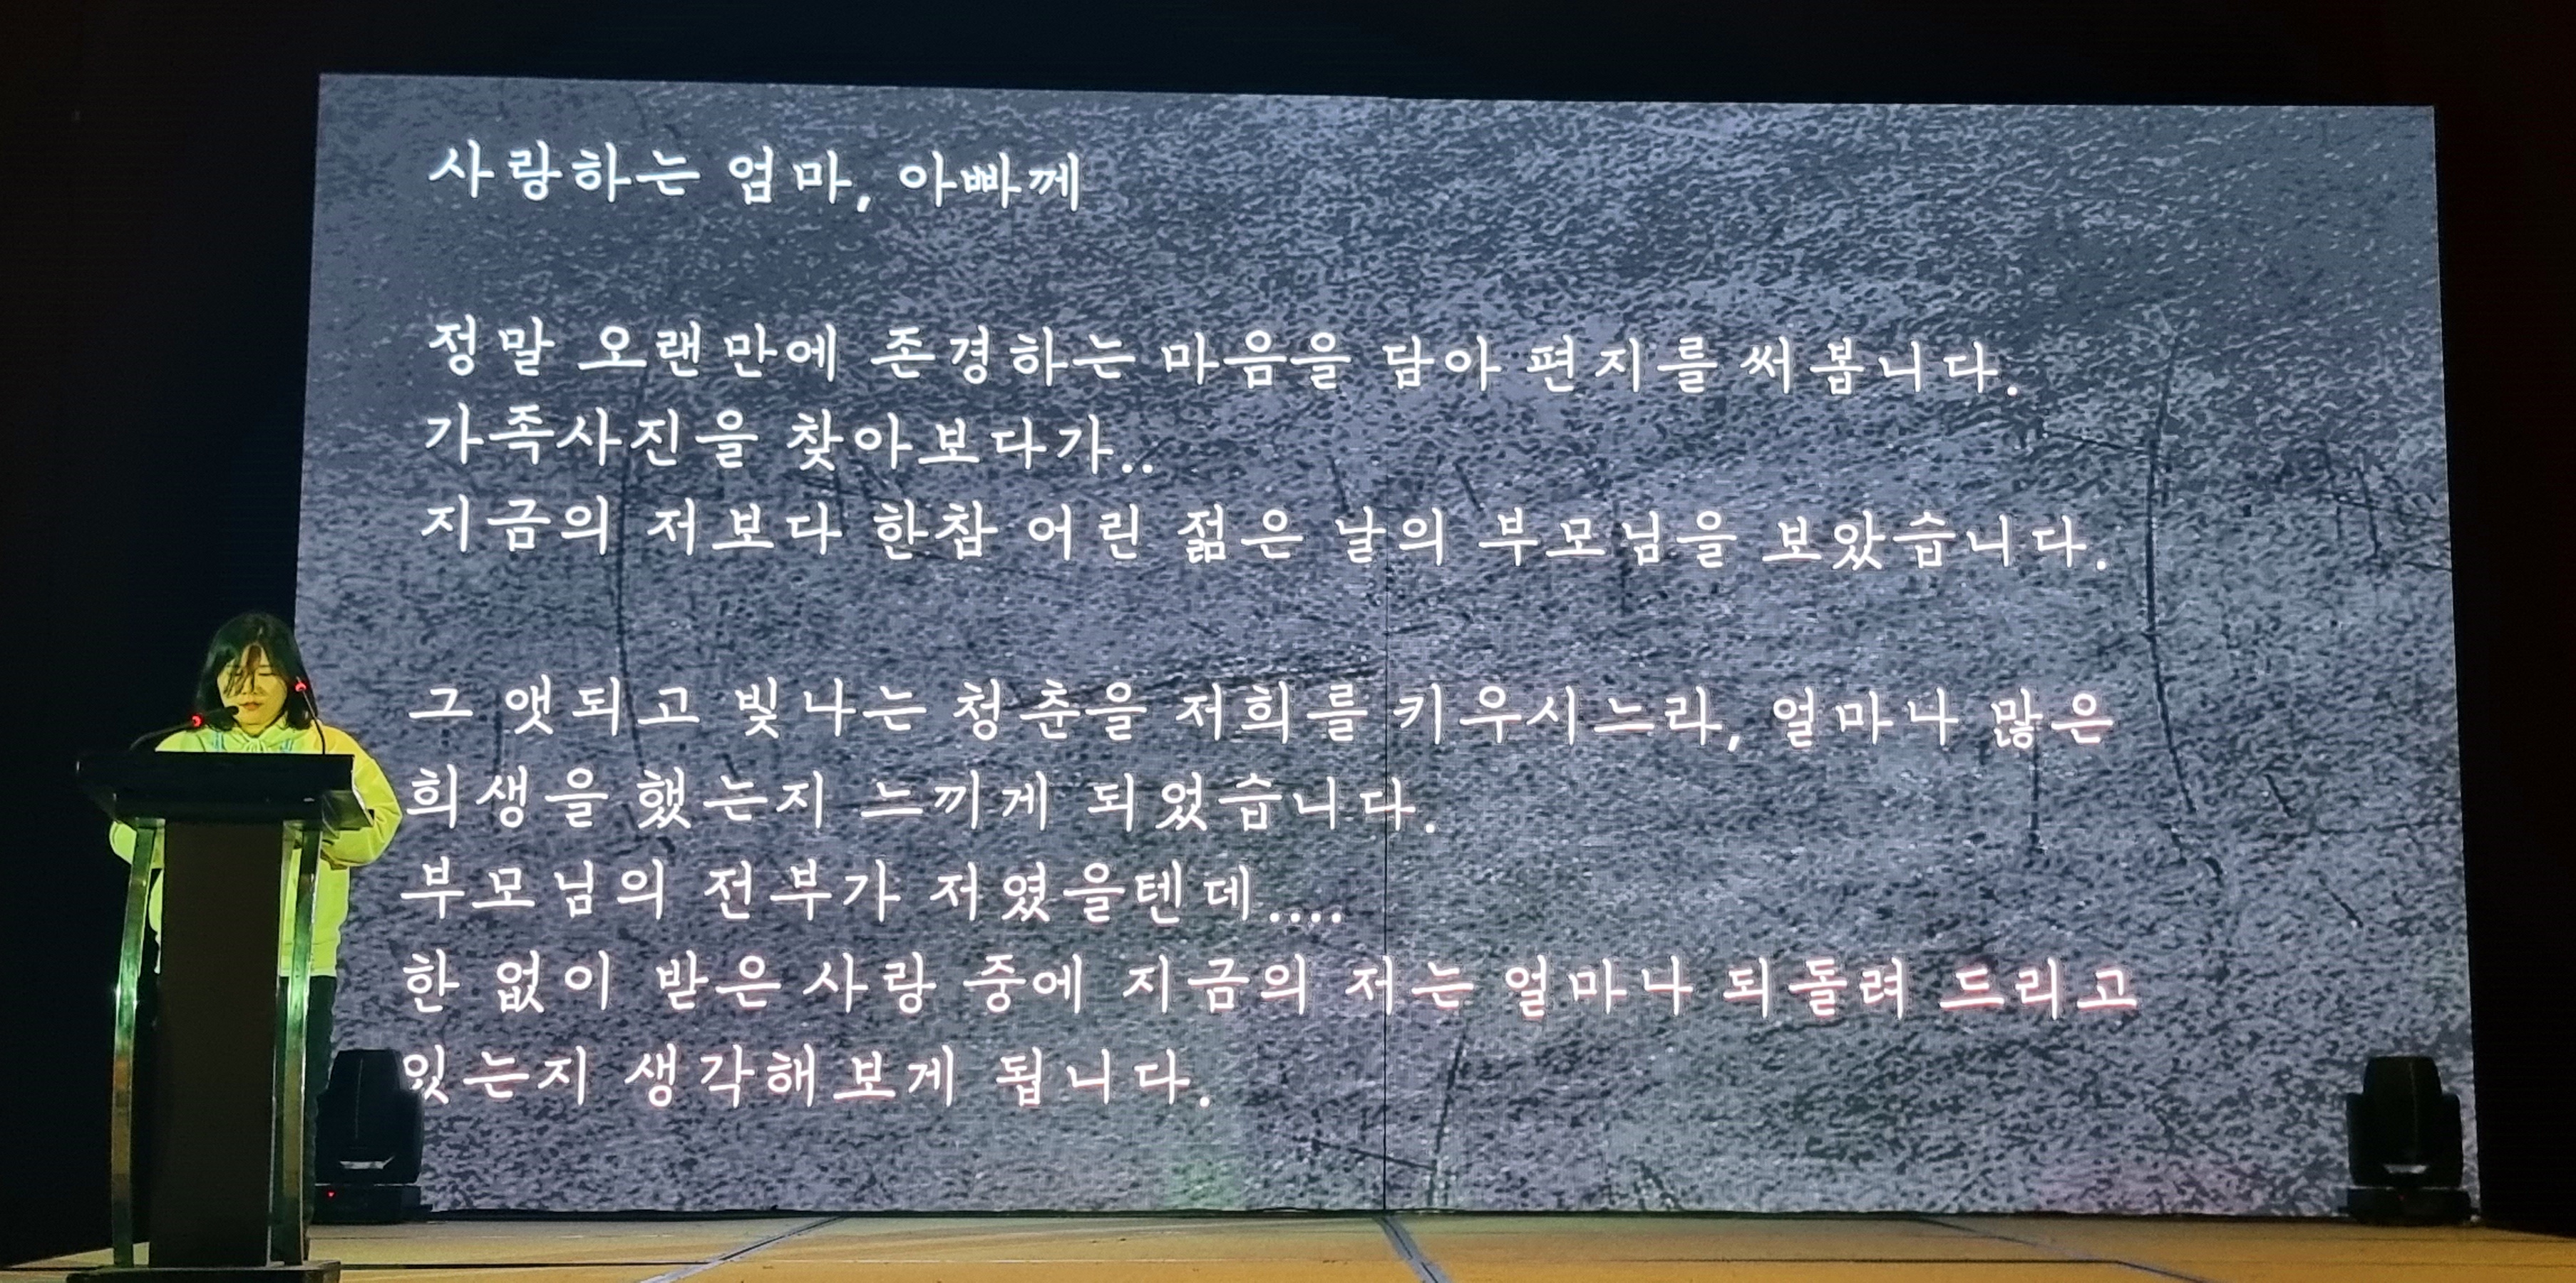 사랑하는 엄마, 아빠께
정말 오랜만에 존경하는 마음을 담아 편지를 써봅니다.
가족사진을 찾아보다가..
지금의 저보다 한참 어린 젊은 날의 부모님을 보았습니다.
그 앳되고 빛나는 청춘을 저희를 키우시느라, 얼마나 많은
희생을 했는지 느끼게 되었습니다.
부모님의 전부가 저였을텐데....
한 없이 받은 사랑 중에 지금의 저는 얼마나 되돌려 드리고
있는지 생각해보게 됩니다.